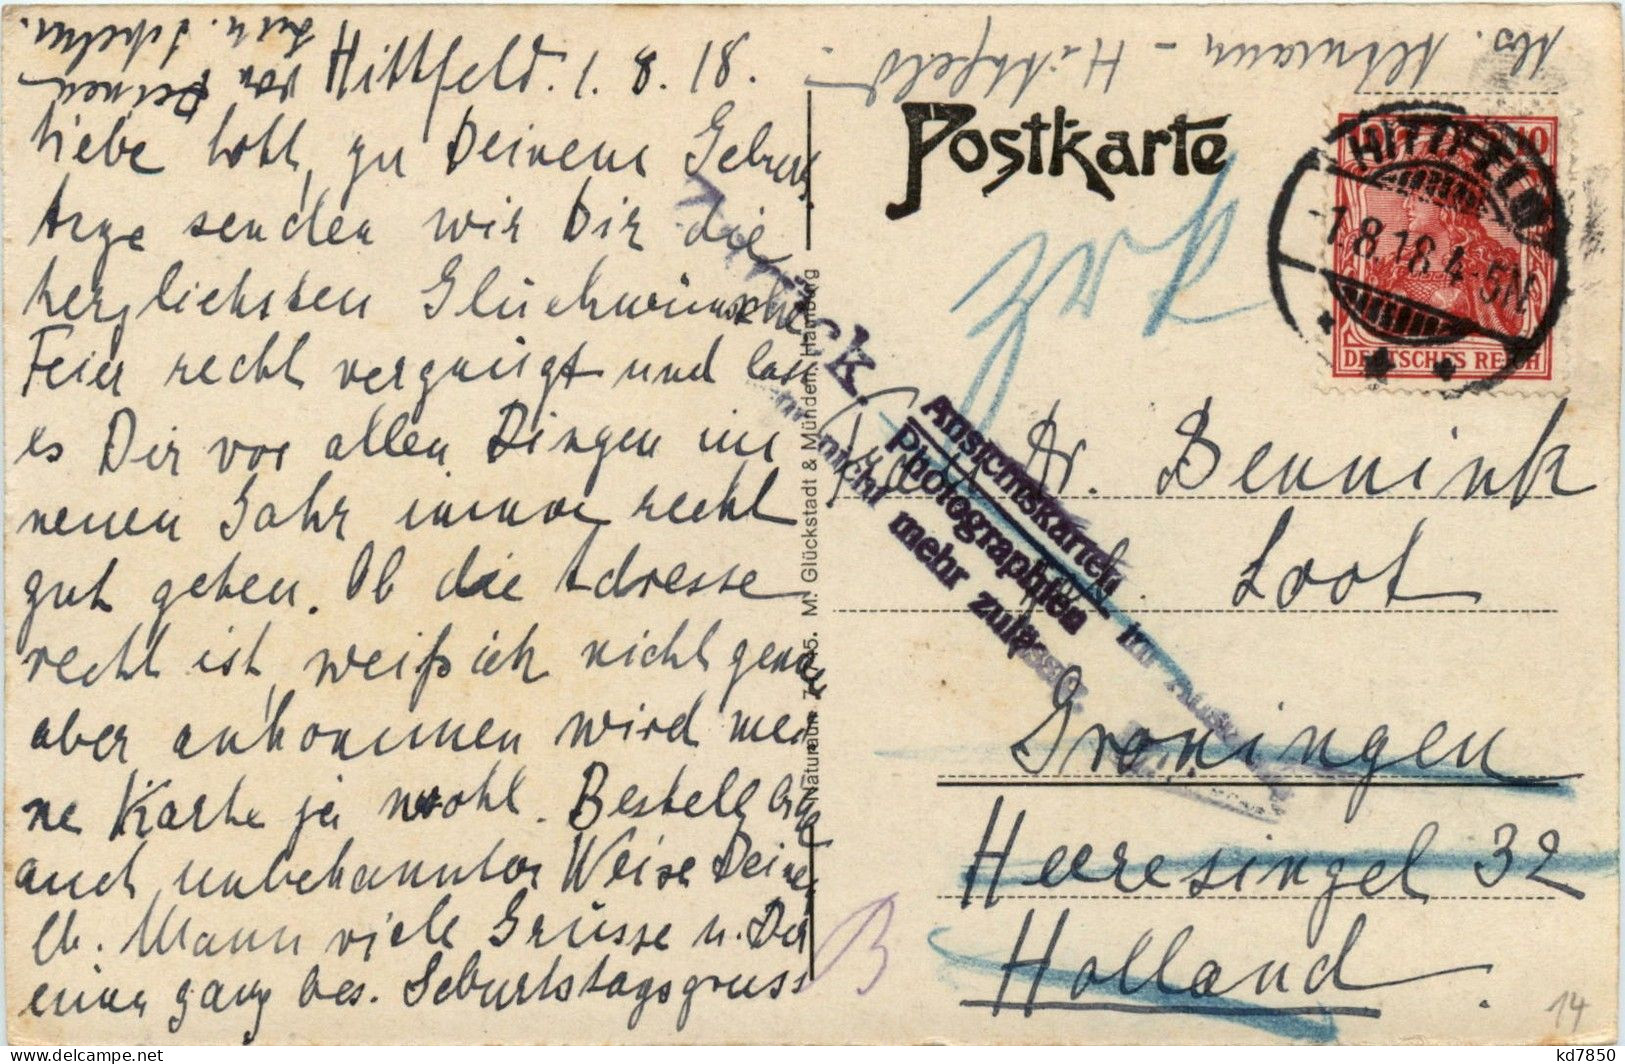 Hittfeld. 1. 8. 18.
Liebe Lott, zu Deinem Geburts
tage senden wir Dir die
herzlichsten Glückwünsche
Feier recht vergnügt und lass
es Dir vor allen Dingen im
neuen Jahr immer recht
gut gehen. Ob die Adresse
recht ist, weiß ich nicht genau
aber ankommen wird mei
ne Karte ja wohl. Bestell bitte
auch unbekannter Weise Deinem
lb. Mann viele Grüsse u. Dei
einen ganz bes. Geburtstagsgruss
von Deinen
Abs. Altmann - Hittfeld
Postkarte
HITTFELD
1.8.18.4-5N
10 10
DEUTSCHES REICH
zrk
Zurück.
Ansichtskarten
Photographien im
nicht mehr zuläs
M. Glückstadt & Münden, Hamburg
Frau Dr. Bennink
geb. Loot
Groningen
Heeresingel 32
Holland.
B
14
kd7850